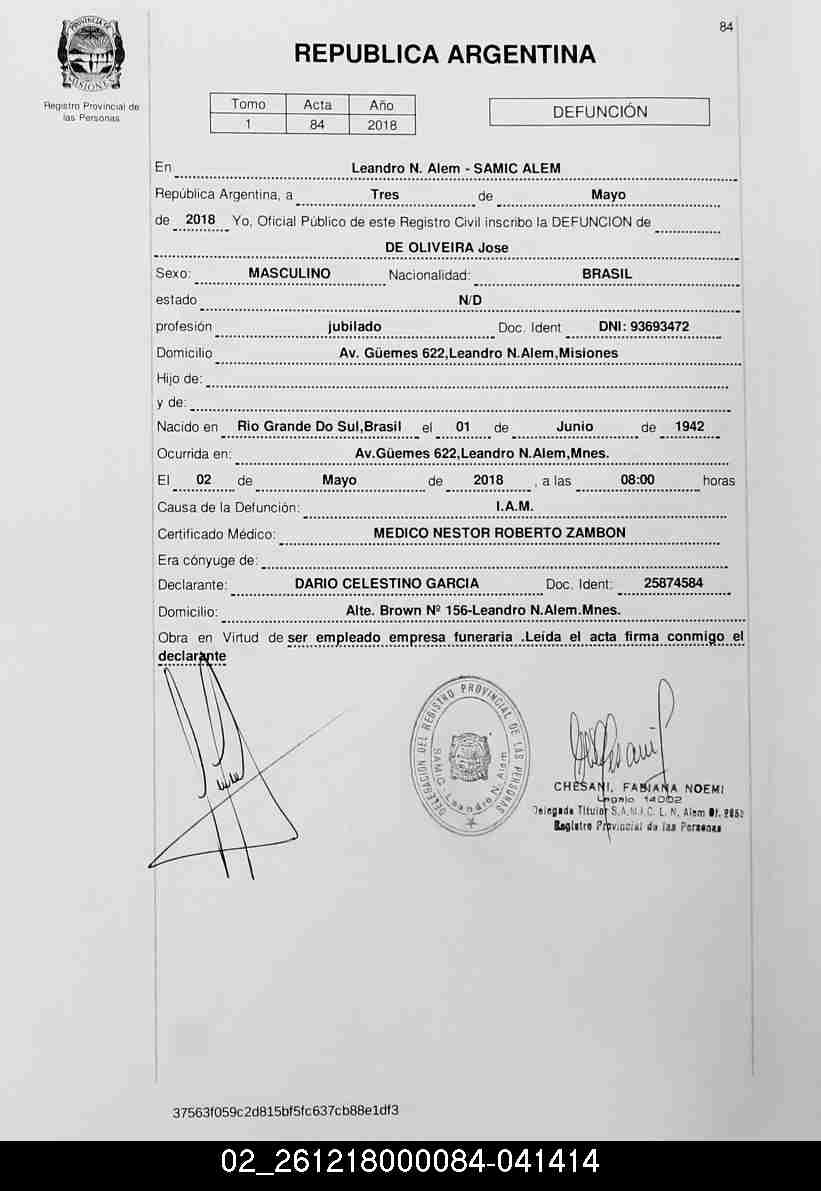 84
PROVINCIA DE
MISIONES
Registro Provincial de
las Personas
REPUBLICA ARGENTINA
Tomo Acta Año
1 84 2018
DEFUNCIÓN
En Leandro N. Alem - SAMIC ALEM
República Argentina, a Tres de Mayo
de 2018 Yo, Oficial Público de este Registro Civil inscribo la DEFUNCION de
DE OLIVEIRA Jose
Sexo: MASCULINO Nacionalidad: BRASIL
estado N/D
profesión jubilado Doc. Ident DNI: 93693472
Domicilio Av. Güemes 622,Leandro N.Alem,Misiones
Hijo de:
y de:
Nacido en Rio Grande Do Sul,Brasil el 01 de Junio de 1942
Ocurrida en: Av.Güemes 622,Leandro N.Alem,Mnes.
El 02 de Mayo de 2018 , a las 08:00 horas
Causa de la Defunción: I.A.M.
Certificado Médico: MEDICO NESTOR ROBERTO ZAMBON
Era cónyuge de:
Declarante: DARIO CELESTINO GARCIA Doc. Ident: 25874584
Domicilio: Alte. Brown Nº 156-Leandro N.Alem.Mnes.
Obra en Virtud de ser empleado empresa funeraria .Leída el acta firma conmigo el
declarante
DELEGACION DEL REGISTRO PROVINCIAL DE LAS PERSONAS
SAMIC - Leandro N. Alem
CHESANI, FABIANA NOEMI
Legajo 14002
Delegada Titular S.A.M.I.C. L. N. Alem
Registro Provincial de las Personas
37563f059c2d815bf5fc637cb88e1df3
02_261218000084-041414